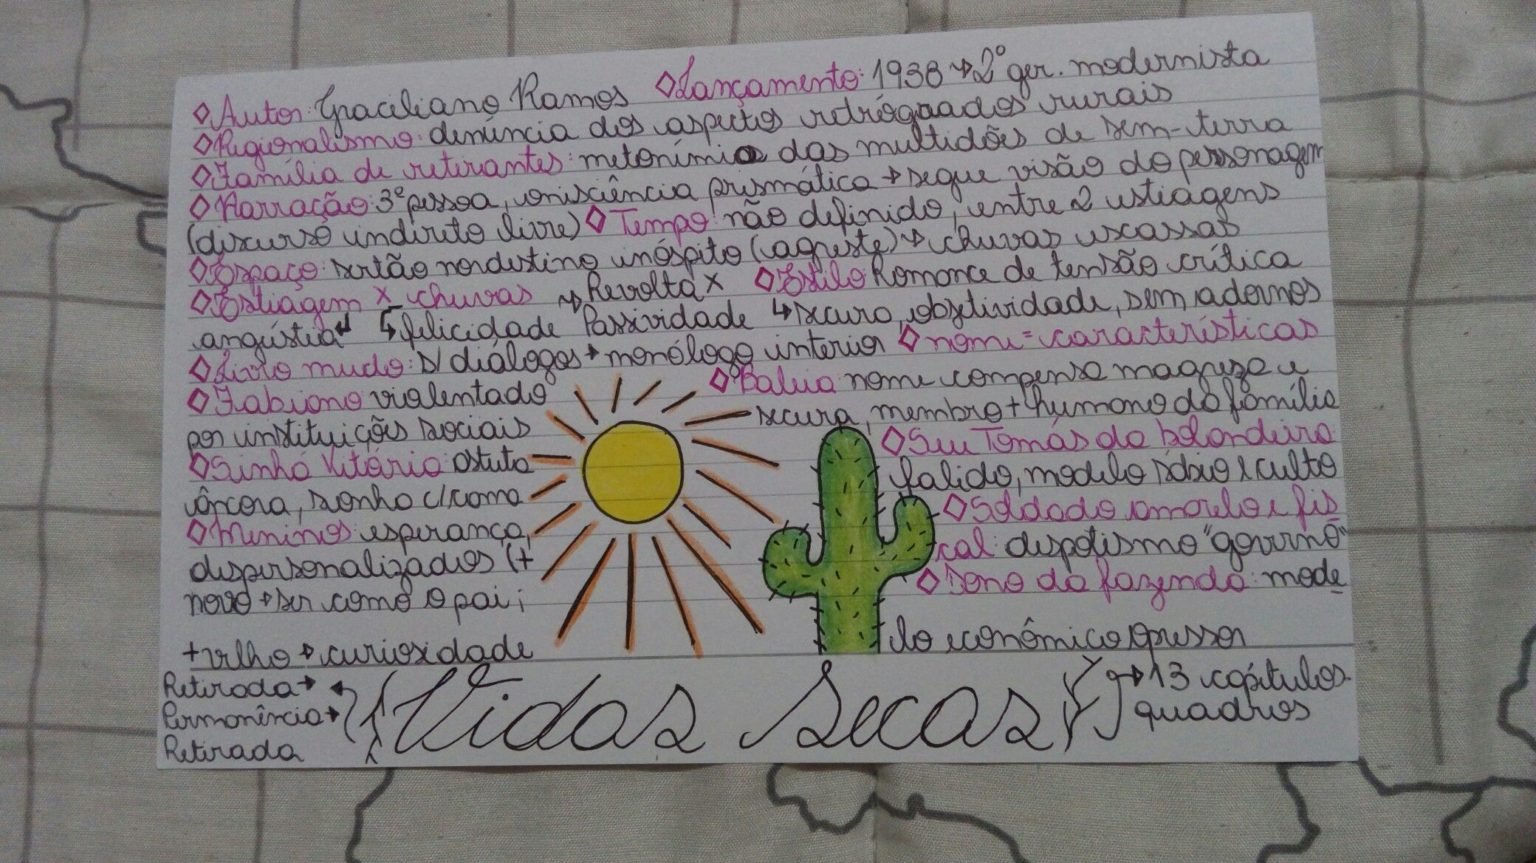 ◊Autor: Graciliano Ramos ◊Lançamento: 1938 → 2º ger. modernista
◊Regionalismo: denúncia dos aspectos retrógrados rurais
◊Família de retirantes: metonímia das multidões de sem-terra
◊Narração: 3º pessoa, onisciência prismática → segue visão do personagem
(discurso indireto livre) ◊Tempo: não definido, entre 2 estiagens
◊Espaço: sertão nordestino inóspito (agreste) → chuvas escassas
◊Estiagem x chuvas → Revolta x ◊Estilo Romance de tensão crítica
angústia↲ ↳felicidade Passividade ↳ secura, objetividade, sem adornos
◊Livro mudo: s/ diálogos → monólogo interior ◊nome = características
◊Fabiano violentado ◊Baleia nome compensa magreza e
por instituições sociais secura, membro + humano da família
◊Sinhá Vitória astuta ◊Seu Tomás da bolandeira
âncora, sonho c/ cama falido, modelo sábio e culto
◊Meninos: esperança, ◊Soldado amarelo e fis
despersonalizados (+ cal: despotismo "governo"
novo → ser como o pai; ◊Dono da fazenda: mode
+ velho → curiosidade lo econômico opressor
Retirada →
Permanência → Vidas Secas → 13 capítulos-
Retirada quadros